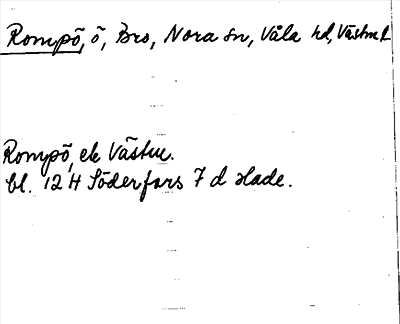 Rompö, ö, Bro, Nora sn, Våla hd, Västm l
Rompö, ek Västm.
bl. 12 H Söderfors 7 d Hade.